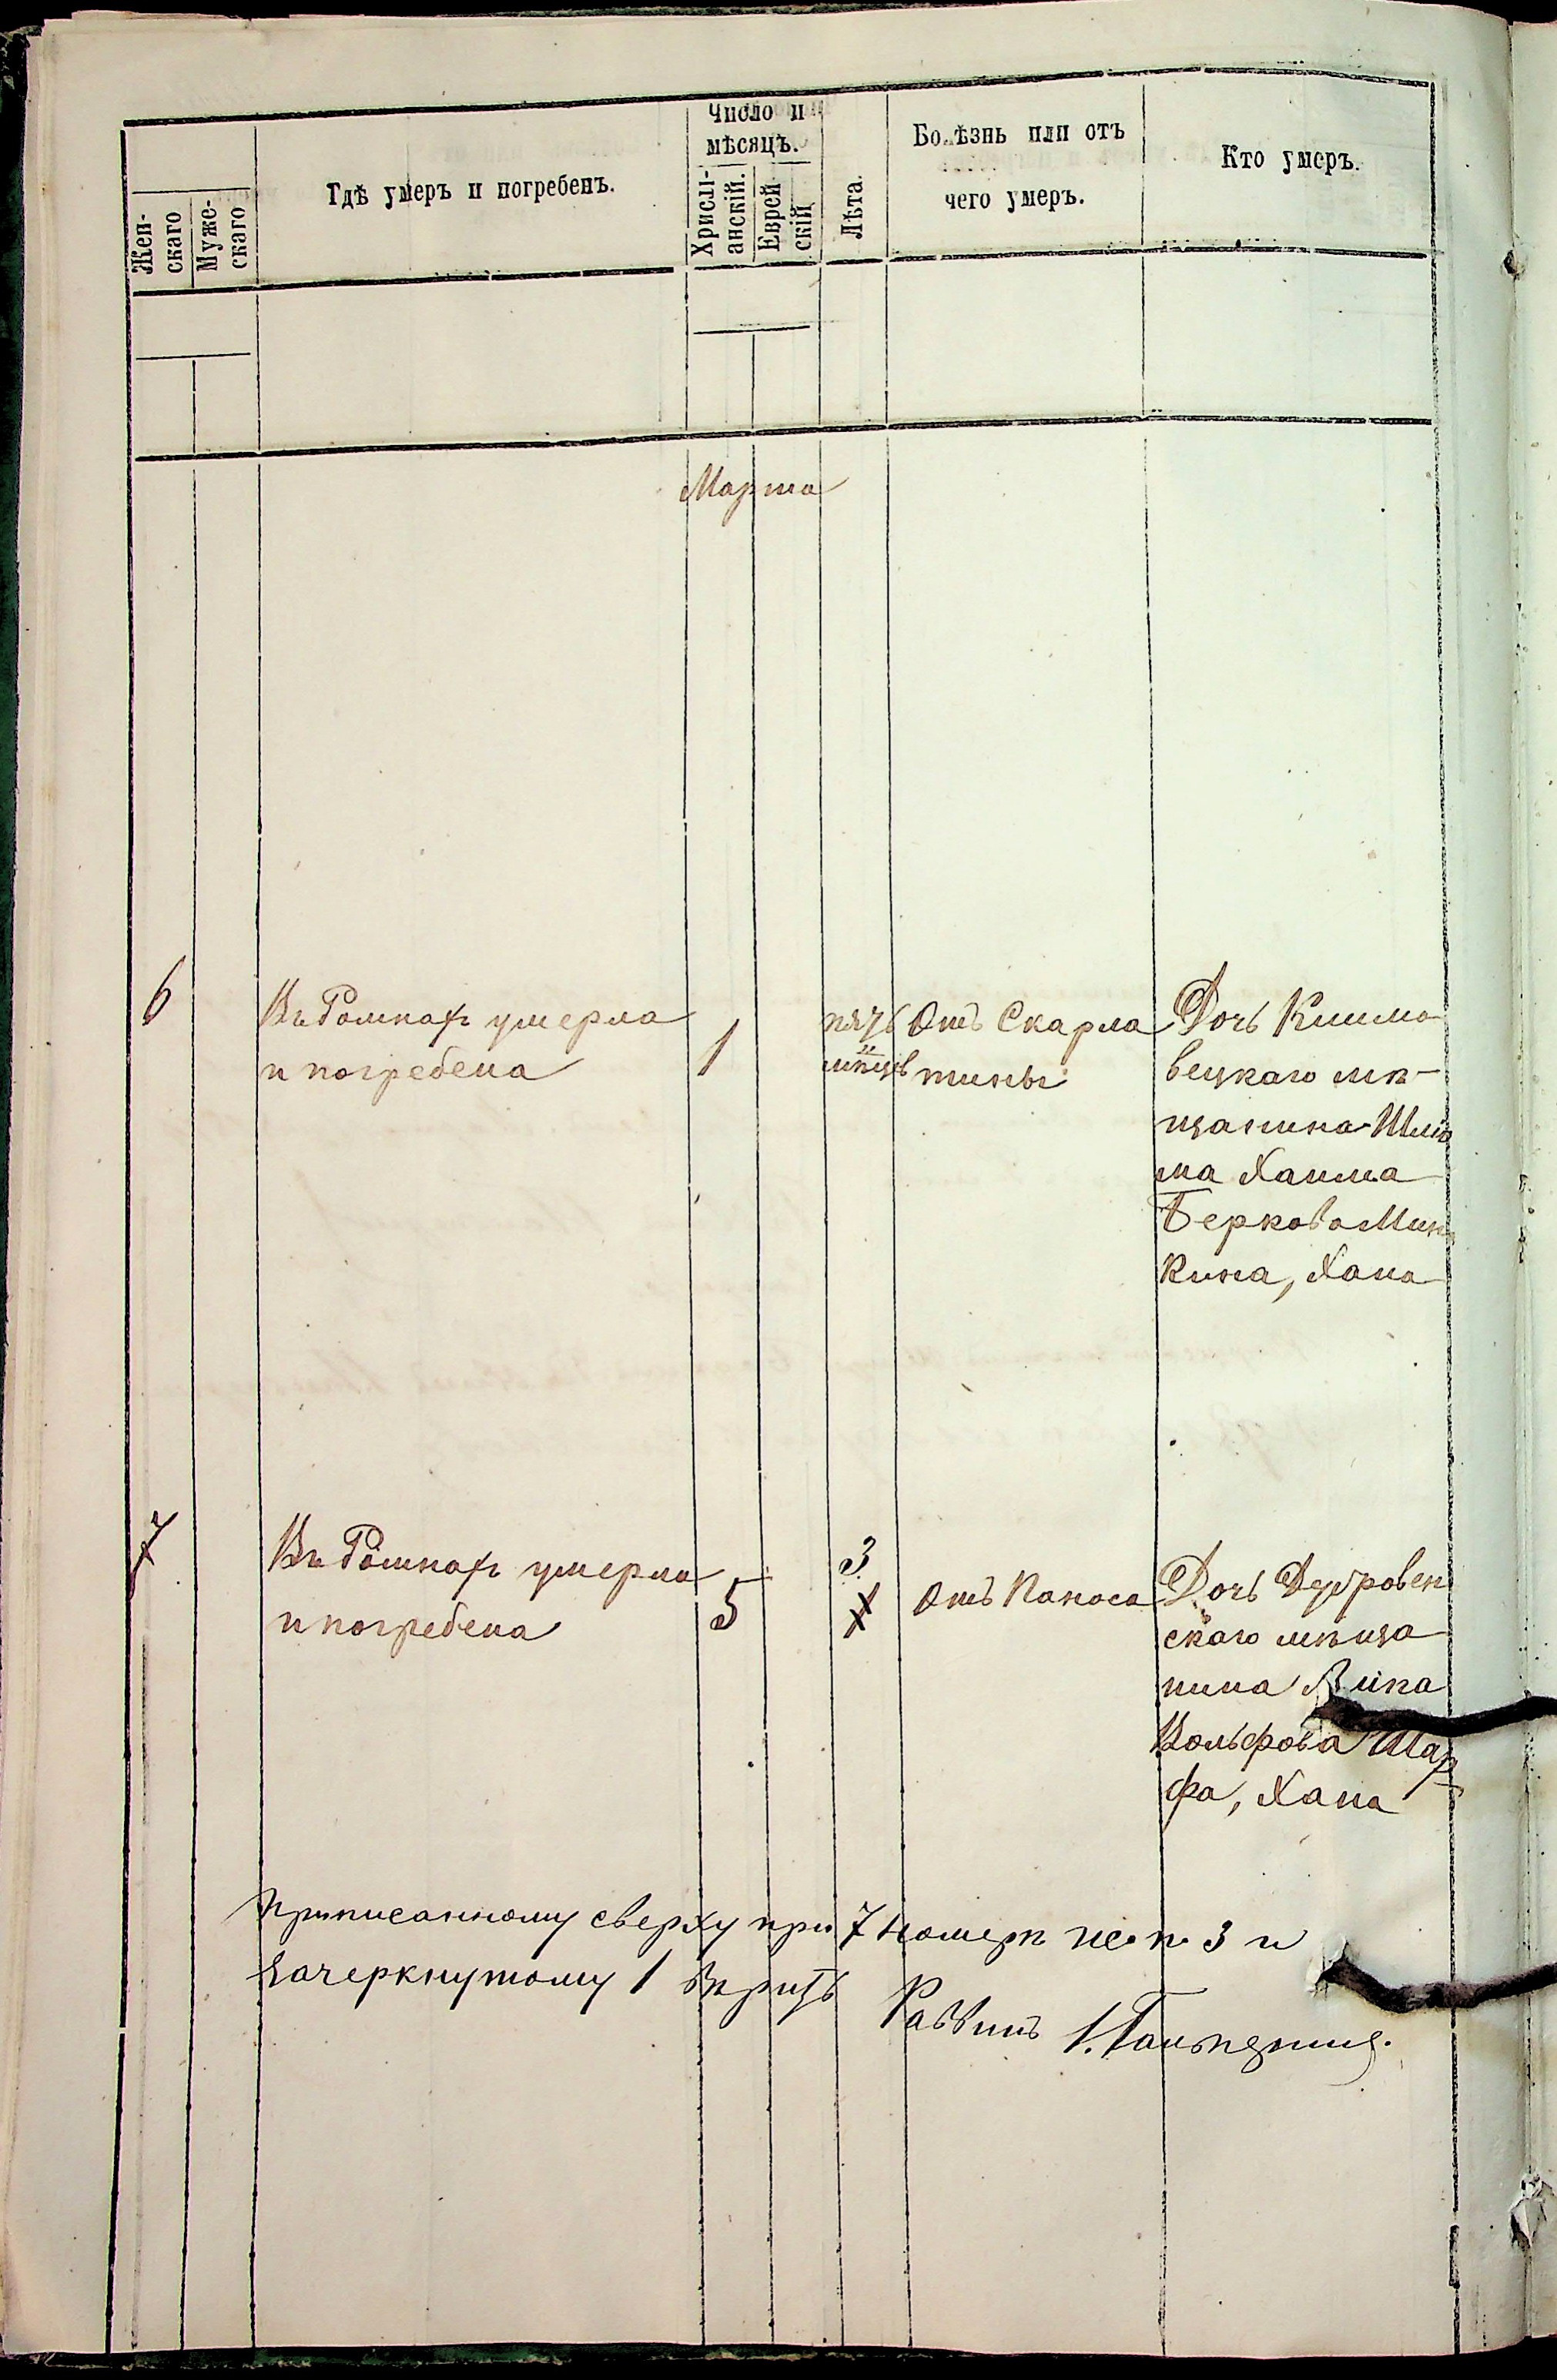 Жен-
скаго
Муже-
скаго
Гдѣ умеръ и погребенъ.
Число и
мѣсяцъ.
Христі-
анскій.
Еврей
скій
Лѣта.
Болѣзнь или отъ
чего умеръ.
Кто умеръ.
Марта
6
Въ Ромнахъ умерла
и погребена
1
пять
мѣсцвъ
Отъ Скарла
тины
Дочь Климо
вецкаго мѣ-
щанина Шлio
ма Хаима
Беркова Мин
кина, Хана
7
Въ Ромнахъ умерла
и погребена
5
3
1
Отъ Поноса
Дочь Дубровен
скаго мѣща
нина Айка
Вольфова Шар
фа, Хана
Приписанному сверху при 7 номерѣ же. п. 3 и
зачеркнутому 1 вѣрить
Раввинъ